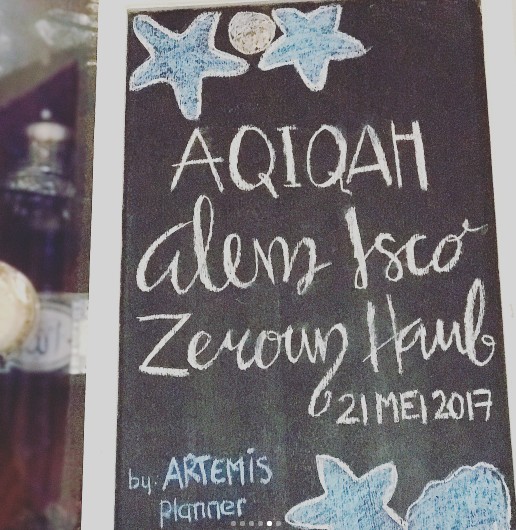 AQIQAH
Alenz Isco
Zeroun Haub
21 MEI 2017
by: ARTEMIS
planner